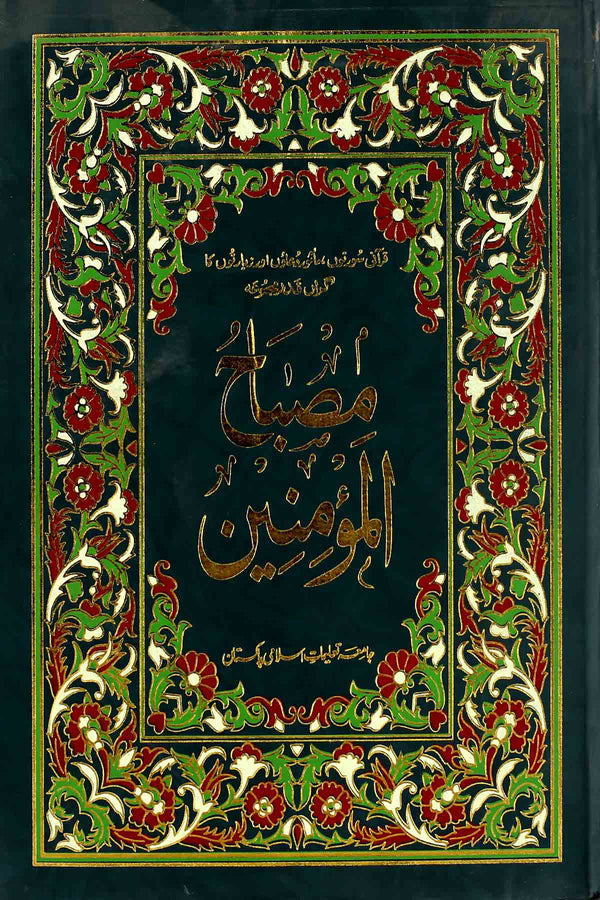 قرآنی سُورتوں، مأثور دُعاؤں اور زیارتوں کا
گراں قدر مجموعہ
مِصبَاحُ
المؤمِنِین
جامعہ تعلیمات اسلامی پاکستان